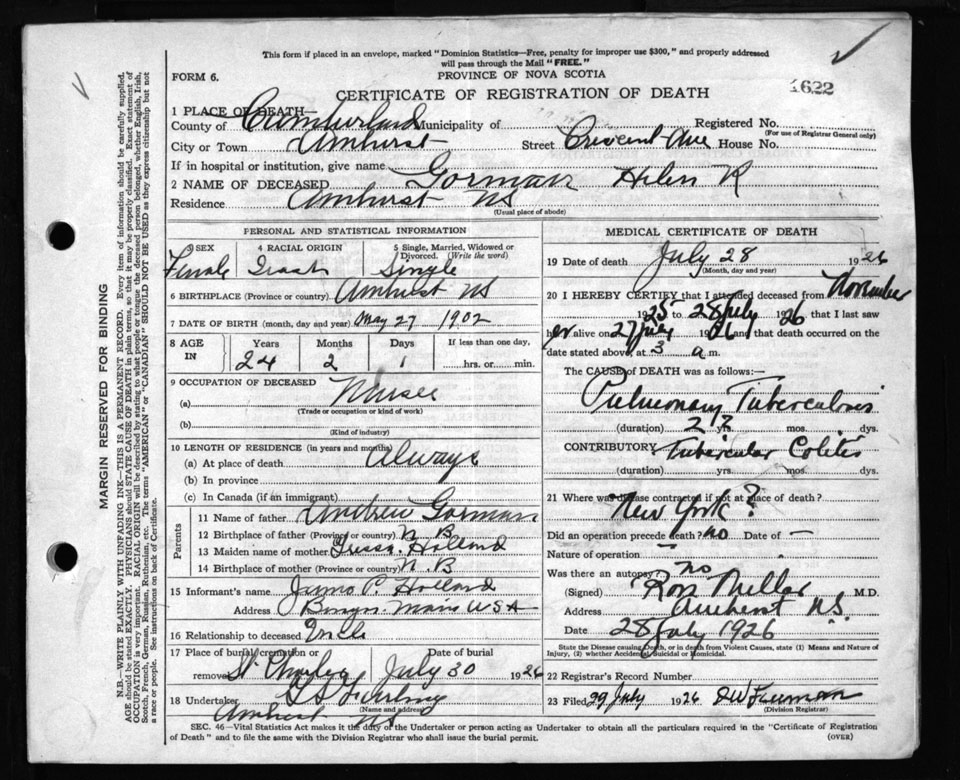 This form if placed in an envelope, marked "Dominion Statistics—Free, penalty for improper use $300," and properly addressed
will pass through the Mail "FREE."
FORM 6.
PROVINCE OF NOVA SCOTIA
CERTIFICATE OF REGISTRATION OF DEATH
1622
1 PLACE OF DEATH—
County of Cumberland Municipality of Registered No.
(For use of Registrar General only)
City or Town Amherst Street Crescent Ave House No.
If in hospital or institution, give name
2 NAME OF DECEASED Gorman Helen R
Residence Amherst NS
(Usual place of abode)
PERSONAL AND STATISTICAL INFORMATION
3 SEX 4 RACIAL ORIGIN 5 Single, Married, Widowed or Divorced. (Write the word)
Female Irish Single
6 BIRTHPLACE (Province or country) Amherst NS
7 DATE OF BIRTH (month, day and year) May 27 1902
8 AGE IN Years Months Days If less than one day,
24 2 1 hrs. or min.
9 OCCUPATION OF DECEASED
(a) Nurse
(Trade or occupation or kind of work)
(b)
(Kind of industry)
10 LENGTH OF RESIDENCE (in years and months)
(a) At place of death Always
(b) In province
(c) In Canada (if an immigrant)
Parents
11 Name of father Andrew Gorman
12 Birthplace of father (Province or country) N B
13 Maiden name of mother Holland
14 Birthplace of mother (Province or country) N. B
15 Informant's name P. Holland
Address Mass USA
16 Relationship to deceased Uncle
17 Place of burial, cremation or removal Date of burial
St Charles July 30 1926
18 Undertaker
(Name and address)
Amherst NS
MEDICAL CERTIFICATE OF DEATH
19 Date of death July 28 1926
(Month, day and year)
20 I HEREBY CERTIFY that I attended deceased from November
1925 to 28 July 1926 that I last saw
her alive on 27 July 1926 and that death occurred on the
date stated above, at 3 a.m.
The CAUSE of DEATH was as follows:—
Pulmonary Tuberculosis
(duration) 2? yrs. mos. dys.
CONTRIBUTORY Tubercular Colitis
(duration) yrs. mos. dys.
21 Where was disease contracted if not at place of death?
New York?
Did an operation precede death? no Date of —
Nature of operation —
Was there an autopsy? no
(Signed) Ross Millar M.D.
Address Amherst N.S.
Date 28 July 1926
State the Disease causing Death, or in death from Violent Causes, state (1) Means and Nature of
Injury, (2) whether Accidental, Suicidal or Homicidal.
22 Registrar's Record Number
23 Filed 29 July 1926 Freeman
(Division Registrar)
SEC. 46—Vital Statistics Act makes it the duty of the Undertaker or person acting as Undertaker to obtain all the particulars required in the "Certificate of Registration
of Death" and to file the same with the Division Registrar who shall issue the burial permit.
(OVER)
MARGIN RESERVED FOR BINDING
N.B.—WRITE PLAINLY WITH UNFADING INK—THIS IS A PERMANENT RECORD. Every item of information should be carefully supplied.
AGE should be stated EXACTLY. PHYSICIANS should STATE CAUSE OF DEATH in plain terms, so that it may be properly classified. Exact statement of
OCCUPATION is very important. RACIAL ORIGIN will be described by stating to what people or tongue the deceased person belonged, whether English, Irish,
Scotch, French, German, Russian, Ruthenian, etc. The terms "AMERICAN" or "CANADIAN" SHOULD NOT BE USED as they express citizenship but not
a race or people. See instructions on back of Certificate.